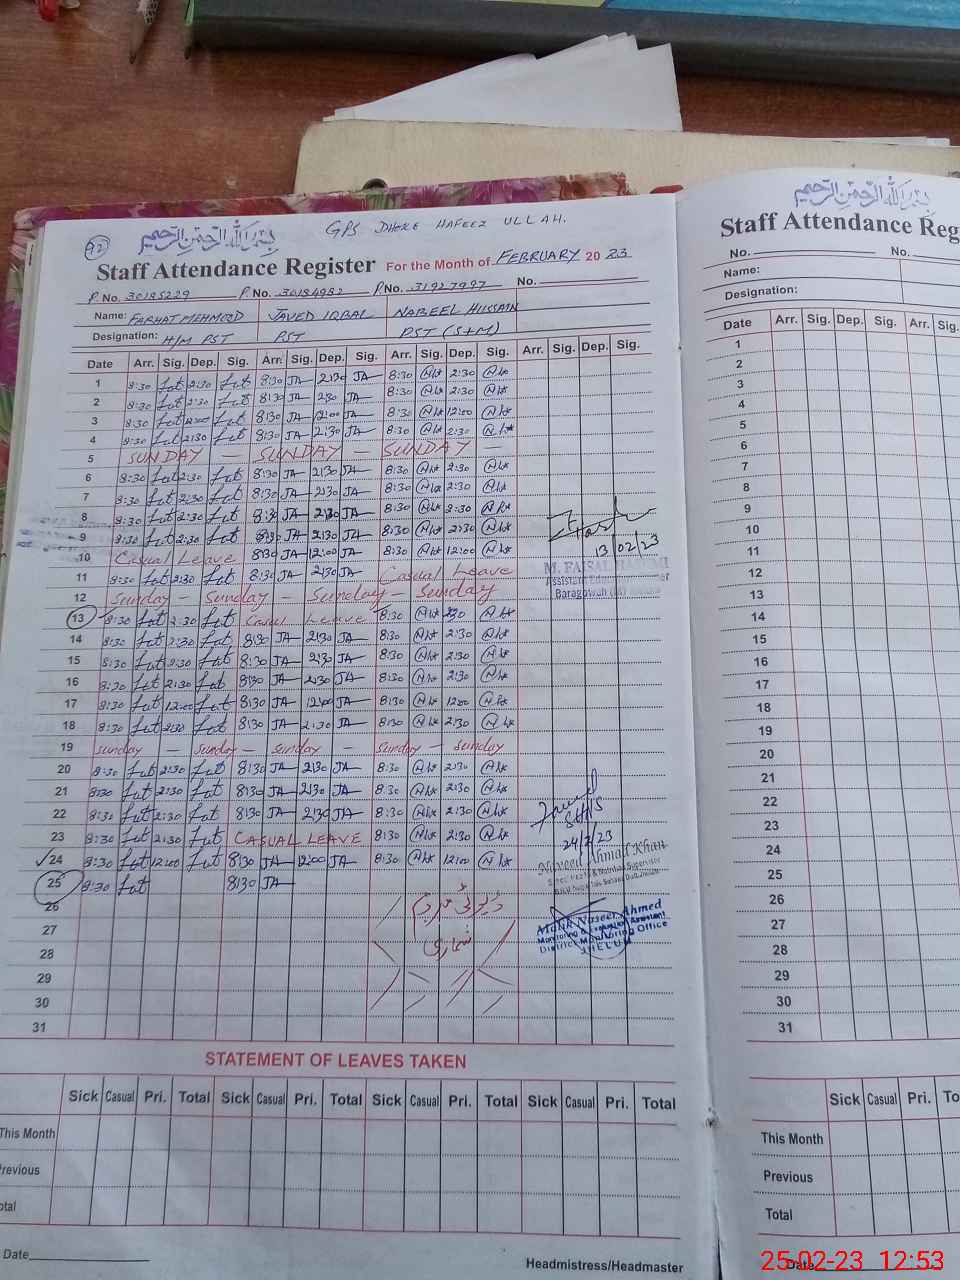 بسم الله الرحمن الرحيم
GPS DHOKE HAFEEZ ULLAH.
92
Staff Attendance Register For the Month of FEBRUARY 20 23
P. No. 30185229 P. No. 30184982 P. No. 31927997 No.
Name: FARHAT MEHMOOD JAVED IQBAL NABEEL HUSSAIN
Designation: H/M PST PST PST (S+M)
Date Arr. Sig. Dep. Sig. Arr. Sig. Dep. Sig. Arr. Sig. Dep. Sig. Arr. Sig. Dep. Sig.
1 8:30 2:30 8:30 JA 2:30 JA 8:30 2:30
2 8:30 2:30 8:30 JA 2:30 JA 8:30 2:30
3 8:30 12:00 8:30 JA 12:00 JA 8:30 12:00
4 8:30 2:30 8:30 JA 2:30 JA 8:30 2:30
5 SUNDAY — SUNDAY — SUNDAY —
6 8:30 2:30 8:30 JA 2:30 JA 8:30 2:30
7 8:30 2:30 8:30 JA 2:30 JA 8:30 2:30
8 8:30 2:30 8:30 JA 2:30 JA 8:30 2:30
9 8:30 2:30 8:30 JA 2:30 JA 8:30 2:30
10 Casual Leave 8:30 JA 12:00 JA 8:30 12:00
11 8:30 2:30 8:30 JA 2:30 JA Casual Leave
12 Sunday — Sunday — Sunday — Sunday
13 8:30 2:30 Casual Leave 8:30 2:30
14 8:30 2:30 8:30 JA 2:30 JA 8:30 2:30
15 8:30 2:30 8:30 JA 2:30 JA 8:30 2:30
16 8:30 2:30 8:30 JA 2:30 JA 8:30 2:30
17 8:30 12:00 8:30 JA 12:00 JA 8:30 12:00
18 8:30 2:30 8:30 JA 2:30 JA 8:30 2:30
19 Sunday — Sunday — Sunday — Sunday — Sunday
20 8:30 2:30 8:30 JA 2:30 JA 8:30 2:30
21 8:30 2:30 8:30 JA 2:30 JA 8:30 2:30
22 8:30 2:30 8:30 JA 2:30 JA 8:30 2:30
23 8:30 2:30 CASUAL LEAVE 8:30 2:30
24 8:30 12:00 8:30 JA 12:00 JA 8:30 12:00
25 8:30 8:30 JA
26
27
28
29
30
31
13/02/23
M. FAISAL
Assistant
24/2/23
Naveed Ahmad Khan
Malik Naseer Ahmed
Monitoring & Evaluation Assistant
District Monitoring Office
JHELUM
STATEMENT OF LEAVES TAKEN
Sick Casual Pri. Total Sick Casual Pri. Total Sick Casual Pri. Total Sick Casual Pri. Total
This Month
Previous
Total
Date
Headmistress/Headmaster
بسم الله الرحمن الرحيم
Staff Attendance Reg
No. No.
Name:
Designation:
Date Arr. Sig. Dep. Sig. Arr. Sig.
1
2
3
4
5
6
7
8
9
10
11
12
13
14
15
16
17
18
19
20
21
22
23
24
25
26
27
28
29
30
31
Sick Casual Pri. To
This Month
Previous
Total
Date
25-02-23 12:53